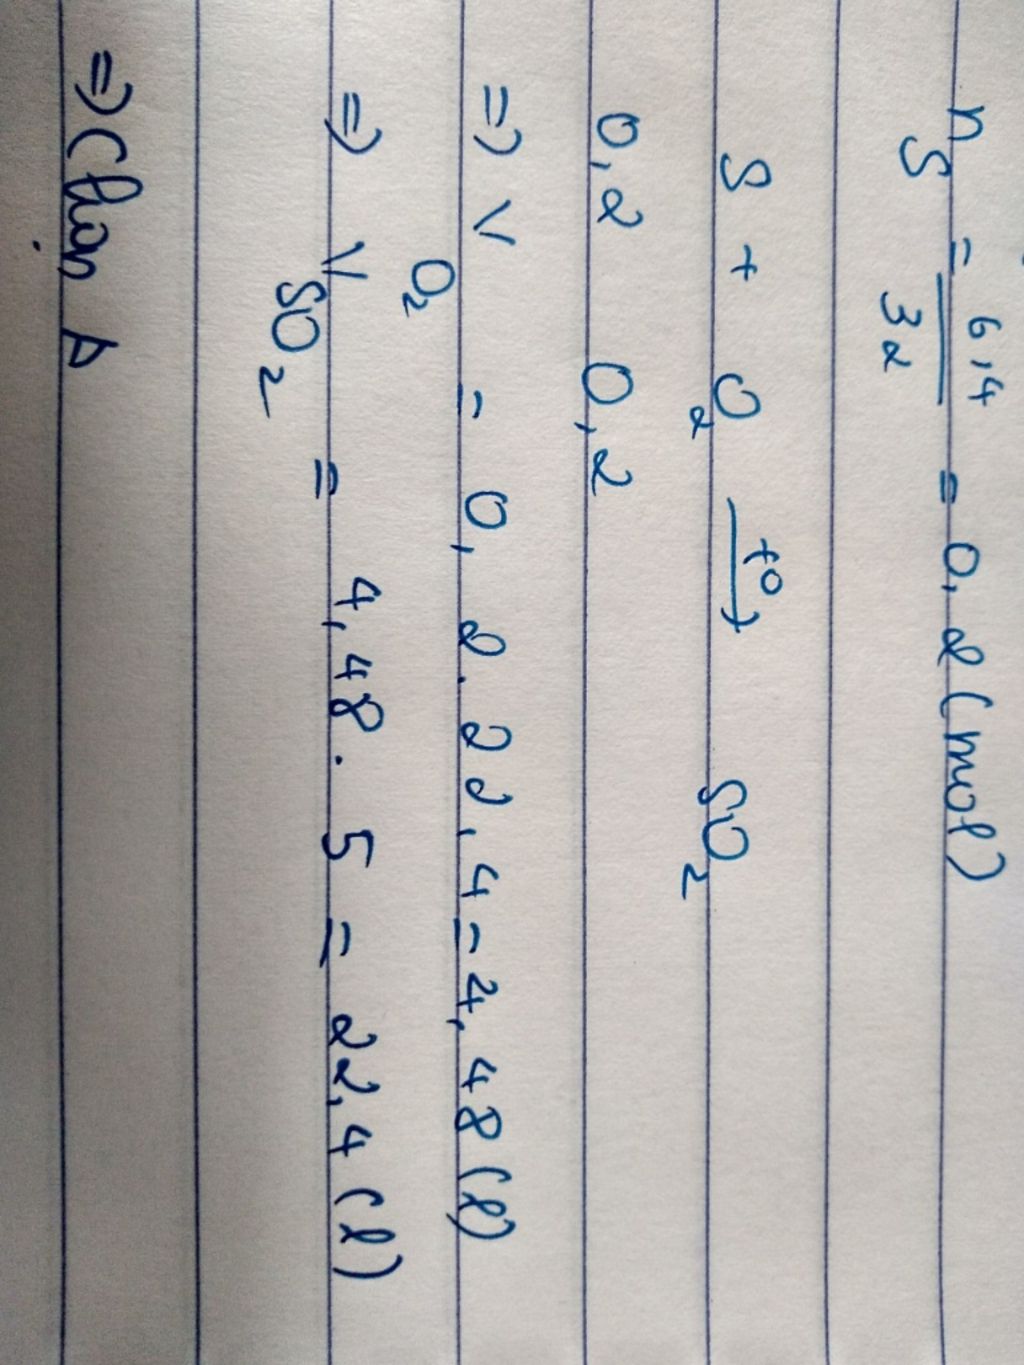 n_S = 6,4/32 = 0,2 (mol)
S + O₂ —t⁰→ SO₂
0,2 0,2
=> V_O₂ = 0,2.22,4 = 4,48 (l)
=> V_SO₂ = 4,48.5 = 22,4 (l)
=> Chọn A